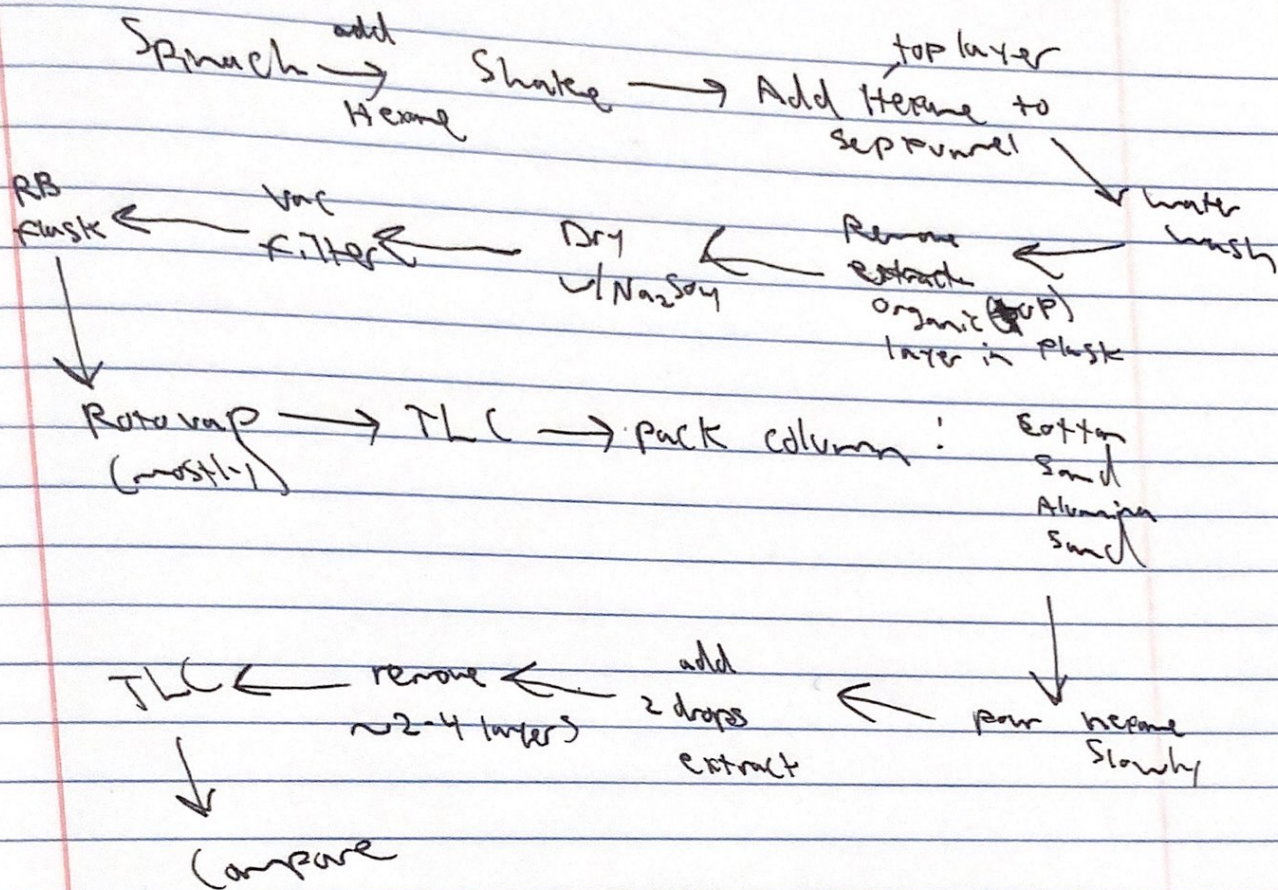 Spinach add → Hexane Shake → Add Hexane to sep funnel
top layer
water wash
Remove extract organic (up) layer in flask
Dry w/ Na₂SO₄
Vac filter
RB flask
Rotovap (mostly) → TLC → pack column :
Cotton
Sand
Alumina
Sand
pour hexane slowly
add 2 drops extract
remove ~2-4 layers
TLC
Compare